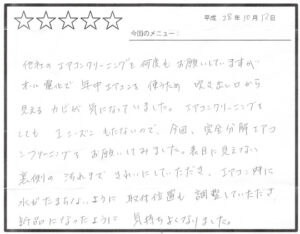 平成 28年 10月 12日
今回のメニュー：
他社の エアコンクリーニングも 何度も お願いしていますが
オール電化で 年中 エアコンを 使うため 吹き出し口から
見える カビが 気になっていました。エアコンクリーニングを
しても 1シーズン もたないので、今回、完全分解エアコ
ンクリーニングを お願いしてみました。表目に見えない
裏側の 汚れまで きれいにしていただき、エアコン内に
水がたまらないように 取付位置も 調整していただき
新品になったように 気持ちよくなりました。